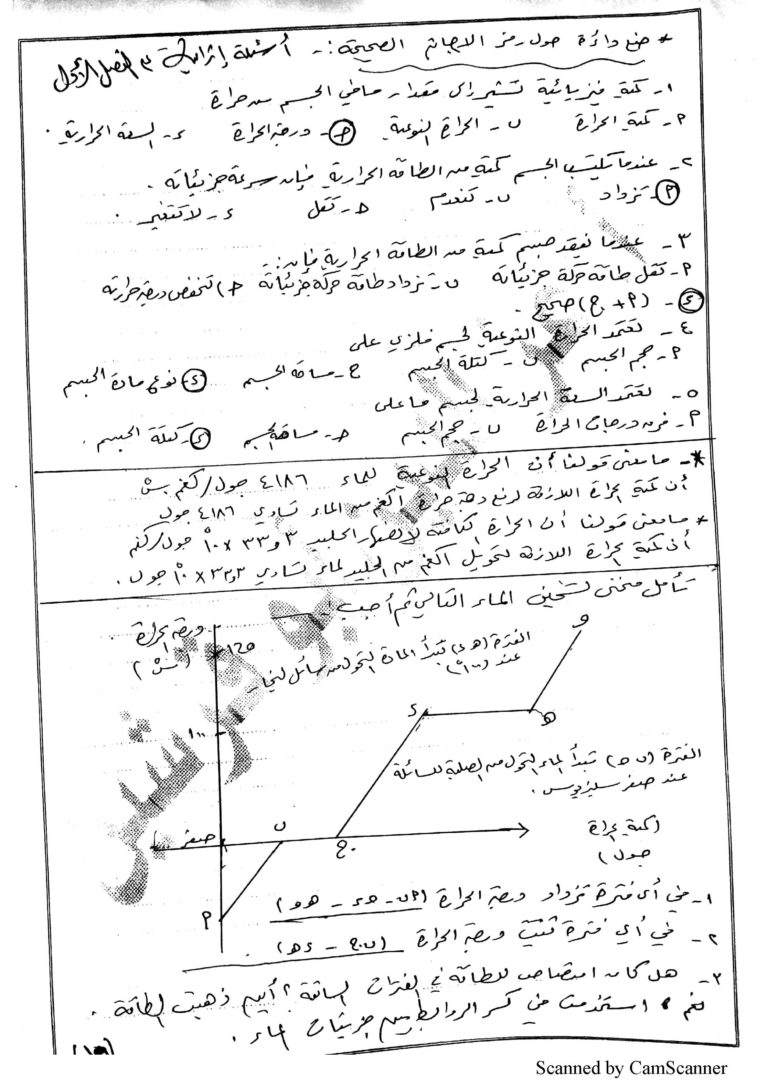 * ضع دائرة حول رمز الاجابة الصحيحة :- أسئلة إثرائية ٣ الفصل الأول
١- كمية فيزيائية تشير إلى مقدار ما في الجسم من حرارة
٢- كمية الحرارة ب- الحرارة النوعية ج- درجة الحرارة د- السعة الحرارية.
٢- عندما يكتسب الجسم كمية من الطاقة الحرارية فإن سرعة جزيئاته.
٢- تزداد ب- تنعدم ج- تقل د- لا تتغير.
٣- عندما يفقد جسم كمية من الطاقة الحرارية فإن :-
٢- تقل طاقة حركة جزيئاته ب- تزداد طاقة حركة جزيئاته ج) تنخفض درجة حرارته
د- (٢ + ج) صحيح.
٤- تعتمد الحرارة النوعية لجسم فلزي على
٢- حجم الجسم ب- كتلة الجسم ج- مساحة الجسم د- نوع مادة الجسم
٥- تعتمد السعة الحرارية لجسم ما على
٢- فرق درجات الحرارة ب- حجم الجسم ج- مساحة الجسم د- كتلة الجسم.
*- ما معنى قولنا أن الحرارة النوعية للماء ٤١٨٦ جول/كغم.سْ
أن كمية الحرارة اللازمة لرفع درجة حرارة ١كغم من الماء تساوي ٤١٨٦ جول
* ما معنى قولنا أن الحرارة الكامنة لانصهار الجليد ٣و٣٣ × ١٠ْ جول/كغم
أن كمية الحرارة اللازمة لتحويل ١كغم من الجليد لماء تساوي ٣و٣٣ × ١٠ْ جول.
تأمل منحنى تسخين الماء التالي ثم أجيب :-
درجة الحرارة
(سْ)
١٢٥
الفترة (د هـ) تبدأ المادة التحول من سائل لبخار
عند (١٠٠ْ)
و
د
هـ
١٠٠
الفترة (ب ج) تبدأ الماء التحول من الصلبة للسائلة
عند صفر سيليزيوس.
صفر
ب
ج
(كمية حرارة
جول)
٢
١- في أي فترة تزداد درجة الحرارة (٢ب - ج د - هـ و)
٢- في أي فترة تثبت درجة الحرارة (ب ج - د هـ)
٣- هل كان امتصاص للطاقة في الفترات السابقة؟ أين ذهبت الطاقة.
نعم ، استخدمت في كسر الروابط بين جزيئات الماء.
Scanned by CamScanner